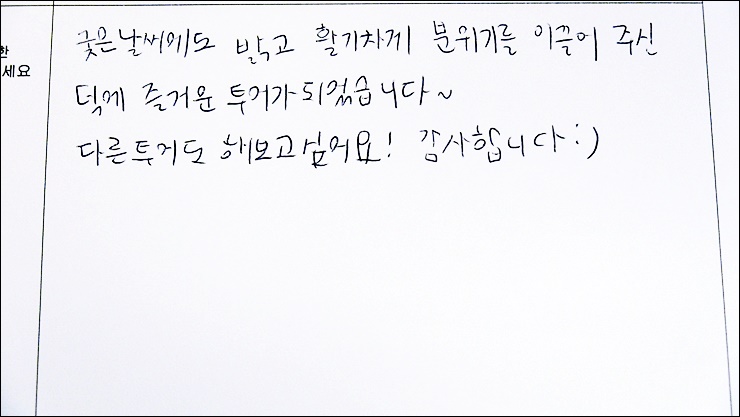 궂은날씨에도 밝고 활기차게 분위기를 이끌어 주신
덕에 즐거운 투어가 되었습니다~
다른투어도 해보고싶어요! 감사합니다:)
한
세요